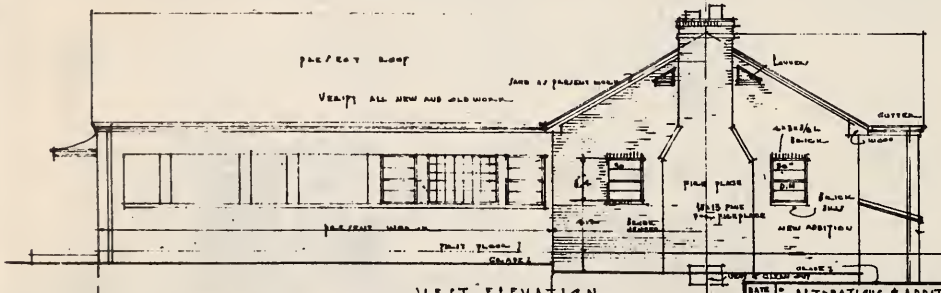 PRESENT ROOF
VERIFY ALL NEW AND OLD WORK
SAME AS PRESENT WORK
LOUVERS
GUTTER
WOOD
BRICK
30"
D.H.
FIRE PLACE
BRICK
SILLS
NEW ADDITION
BRICK
PRESENT WORK
FIRST FLOOR
GRADE
GRADE
VENT & CLEAN OUT
WEST ELEVATION
DATE
ALTERATIONS & ADDIT